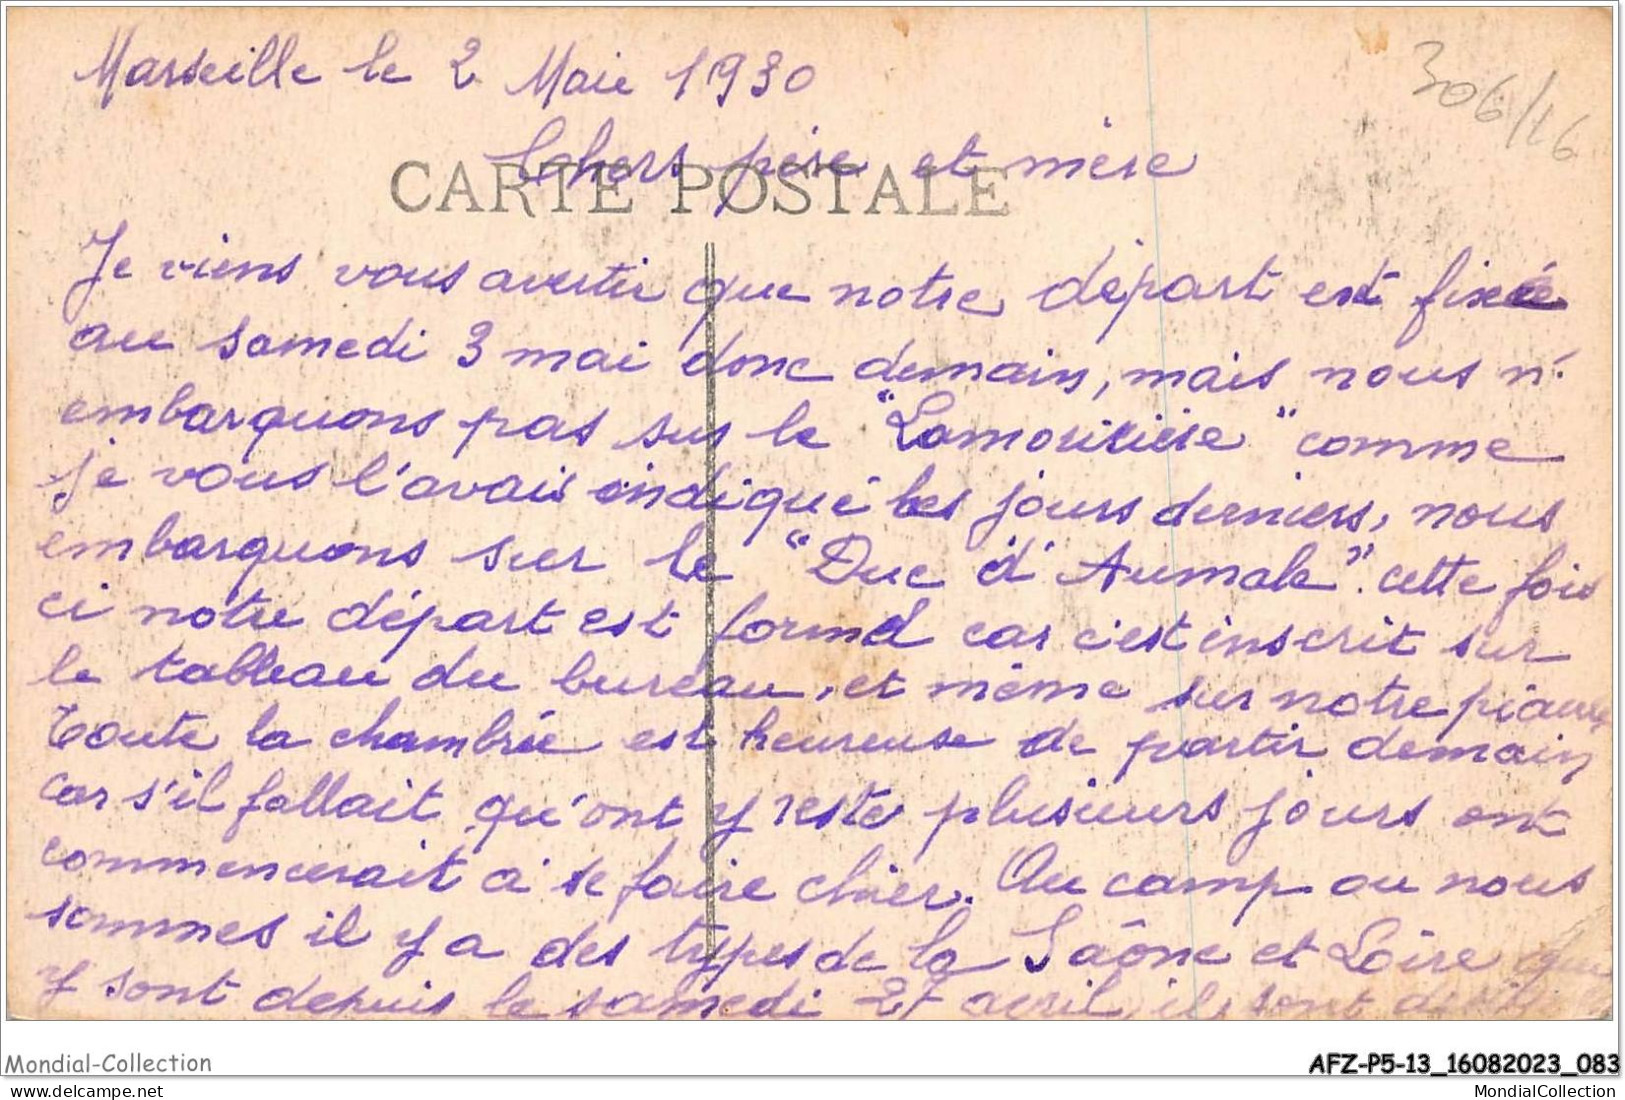 Marseille le 2 Maie 1930
306/16
Cohers père et mère
CARTE POSTALE
Je viens vous avertir que notre départ est fixée
au samedi 3 mai donc demain, mais nous n'
embarquons pas sur le "Lamoricière" comme
je vous l'avais indiqué les jours derniers, nous
embarquons sur le "Duc d'Aumale". cette fois
ci notre départ est formel car c'est inscrit sur
le tableau du bureau, et même sur notre piaule
Toute la chambrée est heureuse de partir demain
car s'il fallait qu'ont y reste plusieurs jours ont
commencerait a se faire chier. Au camp ou nous
sommes il y a des types de la Saône et Loire qui
y sont depuis le samedi 27 avril, il sont
Mondial-Collection
AFZ-P5-13_16082023_083
www.delcampe.net
MondialCollection